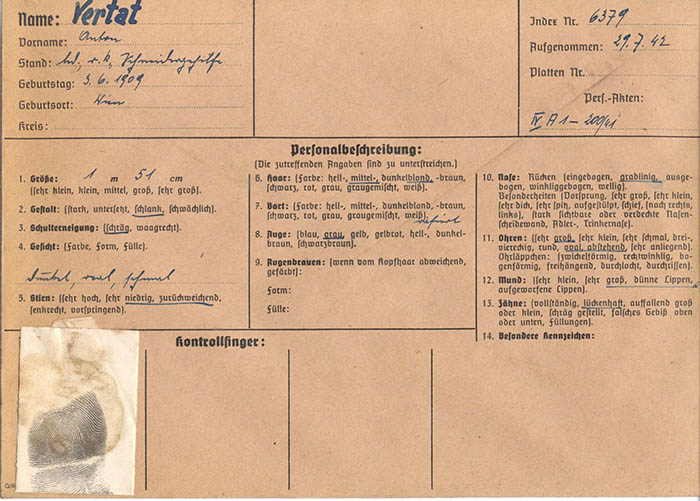 Name: Vertat
Vorname: Anton
Stand: led., r. k., Schneidergehilfe
Geburtstag: 3. 6. 1909
Geburtsort: Wien
Kreis:
Index Nr. 6379
Aufgenommen: 29. 7. 42
Platten Nr.
Pers.-Akten:
IV A 1 –
Personalbeschreibung:
(Die zutreffenden Angaben sind zu unterstreichen.)
1. Größe: 1 m 51 cm
(sehr klein, klein, mittel, groß, sehr groß).
2. Gestalt: (stark, untersetzt, schlank, schwächlich).
3. Schulterneigung: (schräg, waagrecht).
4. Gesicht: (Farbe, Form, Fülle).
dunkel, oval, schmal
5. Stirn: (sehr hoch, sehr niedrig, zurückweichend,
senkrecht, vorspringend).
6. Haar: (Farbe: hell-, mittel-, dunkelblond, -braun,
schwarz, rot, grau, graugemischt, weiß).
7. Bart: (Farbe: hell-, mittel-, dunkelblond, -braun,
schwarz, rot, grau, graugemischt, weiß).
rasiert
8. Auge: (blau, grau, gelb, gelbrot, hell-, dunkel-
braun, schwarzbraun).
9. Augenbrauen: (wenn vom Kopfhaar abweichend,
gefärbt):
Form:
Fülle:
10. Nase: Rücken (eingebogen, gradlinig, ausge-
bogen, winkliggebogen, wellig).
Besonderheiten (Vorsprung, sehr groß, sehr klein,
sehr dick, sehr spitz, aufgestülpt, schief, (nach rechts,
links), stark sichtbare oder verdeckte Nasen-
scheidewand, Adler-, Trinkernase).
11. Ohren: (sehr groß, sehr klein, sehr schmal, drei-
viereckig, rund, oval, abstehend, sehr anliegend).
Ohrläppchen: (zwickelförmig, rechtwinklig, bo-
genförmig, freihängend, durchlocht, durchrissen).
12. Mund: (sehr klein, sehr groß, dünne Lippen,
aufgeworfene Lippen).
13. Zähne: (vollständig, lückenhaft, auffallend groß
oder klein, schräg gestellt, falsches Gebiß oben
oder unten, Füllungen).
14. Besondere Kennzeichen:
Kontrollfinger: